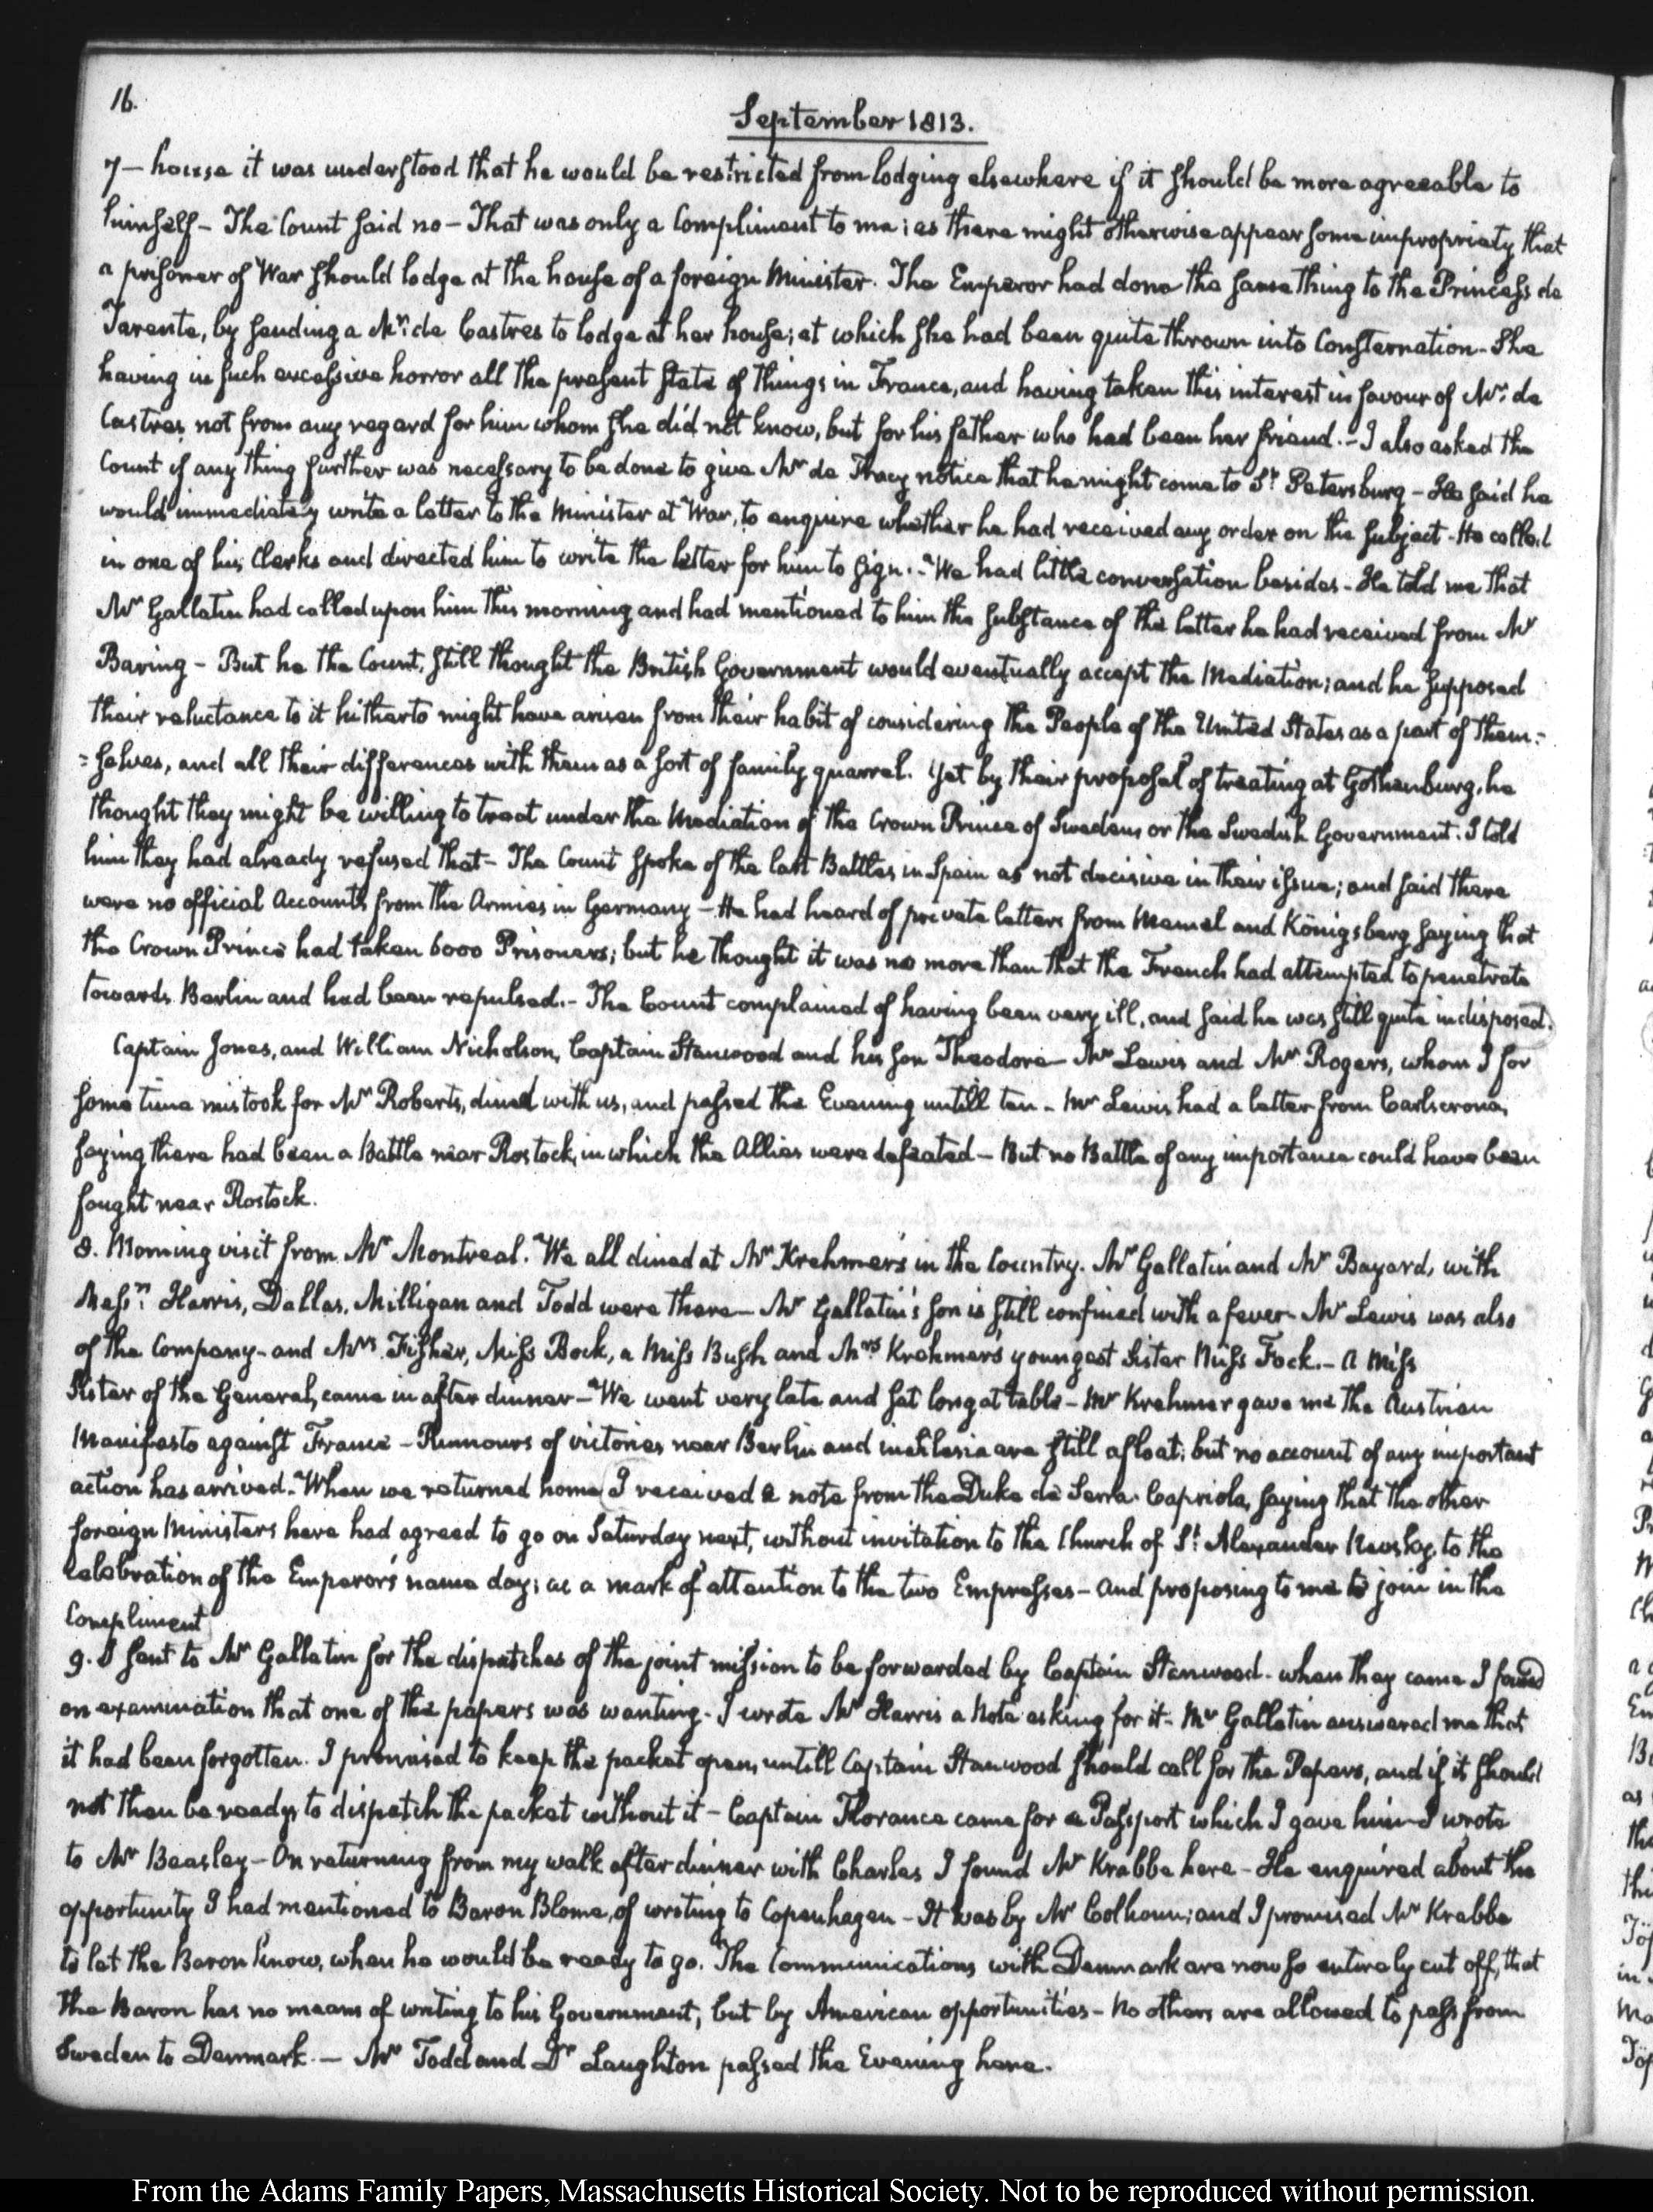 16.
September 1813.
7 — house it was understood that he would be restricted from lodging elsewhere if it should be more agreeable to
himself - The Count said no - That was only a Compliment to me; as there might otherwise appear some impropriety that
a prisoner of War should lodge at the house of a foreign Minister. The Emperor had done the same thing to the Princess de
Tarente, by sending a Mr. de Castres to lodge at her house; at which she had been quite thrown into Consternation - She
having in such excessive horror all the present state of things in France, and having taken this interest in favour of Mr. de
Castres, not from any regard for him whom she did not know, but for his father who had been her friend. - I also asked the
Count if any thing further was necessary to be done to give Mr de Tracy notice that he might come to St Petersburg - He said he
would immediately write a letter to the Minister at War, to enquire whether he had received any order on the subject - He called
in one of his Clerks and directed him to write the letter for him to sign. - We had little conversation besides - He told me that
Mr Gallatin had called upon him this morning and had mentioned to him the substance of the letter he had received from Mr
Baring - But he the Count, still thought the British Government would eventually accept the Mediation; and he supposed
their reluctance to it hitherto might have arisen from their habit of considering the People of the United States as a part of them=
=selves, and all their differences with them as a sort of family quarrel. Yet by their proposal of treating at Gothenburg, he
thought they might be willing to treat under the Mediation of the Crown Prince of Sweden or the Swedish Government. I told
him they had already refused that - The Count spoke of the last Battles in Spain as not decisive in their issue; and said there
were no official Accounts from the Armies in Germany - He had heard of private letters from Memel and Königsberg saying that
the Crown Prince had taken 6000 Prisoners; but he thought it was no more than that the French had attempted to penetrate
towards Berlin and had been repulsed. - The Count complained of having been very ill, and said he was still quite indisposed.
Captain Jones, and William Nicholson, Captain Stanwood and his son Theodore - Mr Lewis and Mr Rogers, whom I for
some time mistook for Mr Roberts, dined with us, and passed the Evening untill ten - Mr Lewis had a letter from Carlscrona,
saying there had been a Battle near Rostock, in which the Allies were defeated - But no Battle of any importance could have been
fought near Rostock.
8. Morning visit from Mr Montreal. We all dined at Mr Krehmer's in the Country. Mr Gallatin and Mr Bayard, with
Messrs. Harris, Dallas, Milligan and Todd were there - Mr Gallatin's son is still confined with a fever - Mr Lewis was also
of the Company - and Mrs Fisher, Miss Bock, a Miss Bush and Mrs Krehmer's youngest Sister Miss Fock. - A Miss
Sister of the General, came in after dinner - We went very late and sat long at table - Mr Krehmer gave me the Austrian
Manifesto against France - Rumours of victories near Berlin and in Silesia are still afloat; but no account of any important
action has arrived. When we returned home I received a note from the Duke de Serra Capriola, saying that the other
foreign Ministers here had agreed to go on Saturday next, without invitation to the Church of St. Alexander Nevsky, to the
celebration of the Emperor's name day; as a mark of attention to the two Empresses - and proposing to me to join in the
Compliment
9. I sent to Mr Gallatin for the dispatches of the joint mission to be forwarded by Captain Stanwood - when they came I found
on examination that one of the papers was wanting - I wrote Mr Harris a Note asking for it - Mr Gallatin answered me that
it had been forgotten. I promised to keep the packet open, untill Captain Stanwood should call for the Papers, and if it should
not then be ready, to dispatch the packet without it - Captain Florance came for a Passport which I gave him - I wrote
to Mr Beasley - On returning from my walk after dinner with Charles I found Mr Krabbe here - He enquired about the
opportunity I had mentioned to Baron Blome, of writing to Copenhagen - It was by Mr Colhoun; and I promised Mr Krabbe
to let the Baron know, when he would be ready to go. The Communications with Denmark are now so entirely cut off, that
the Baron has no means of writing to his Government, but by American opportunities - No others are allowed to pass from
Sweden to Denmark. — Mr Todd and Dr Laughton passed the Evening here.
From the Adams Family Papers, Massachusetts Historical Society. Not to be reproduced without permission.